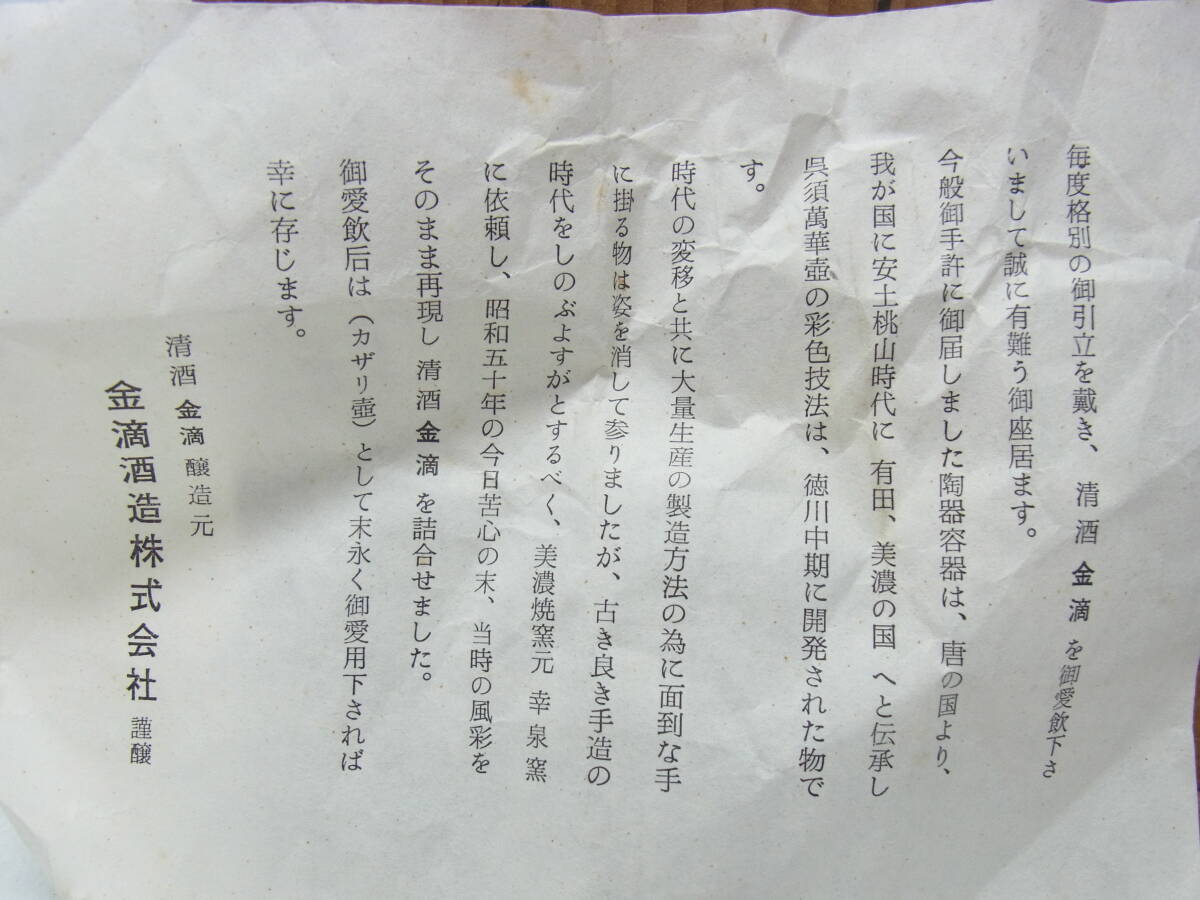 毎度格別の御引立を戴き、清酒金滴を御愛飲下さ
いまして誠に有難う御座居ます。
今般御手許に御届しました陶器容器は、唐の国より、
我が国に安土桃山時代に 有田、美濃の国 へと伝承し
呉須萬華壺の彩色技法は、徳川中期に開発された物で
す。
時代の変移と共に大量生産の製造方法の為に面到な手
に掛る物は姿を消して参りましたが、古き良き手造の
時代をしのぶよすがとするべく、美濃焼窯元 幸泉窯
に依頼し、昭和五十年の今日苦心の末、当時の風彩を
そのまま再現し 清酒 金滴 を詰合せました。
御愛飲后は（カザリ壺）として末永く御愛用下されば
幸に存じます。
清酒 金滴 醸造元
金滴酒造株式会社 謹醸